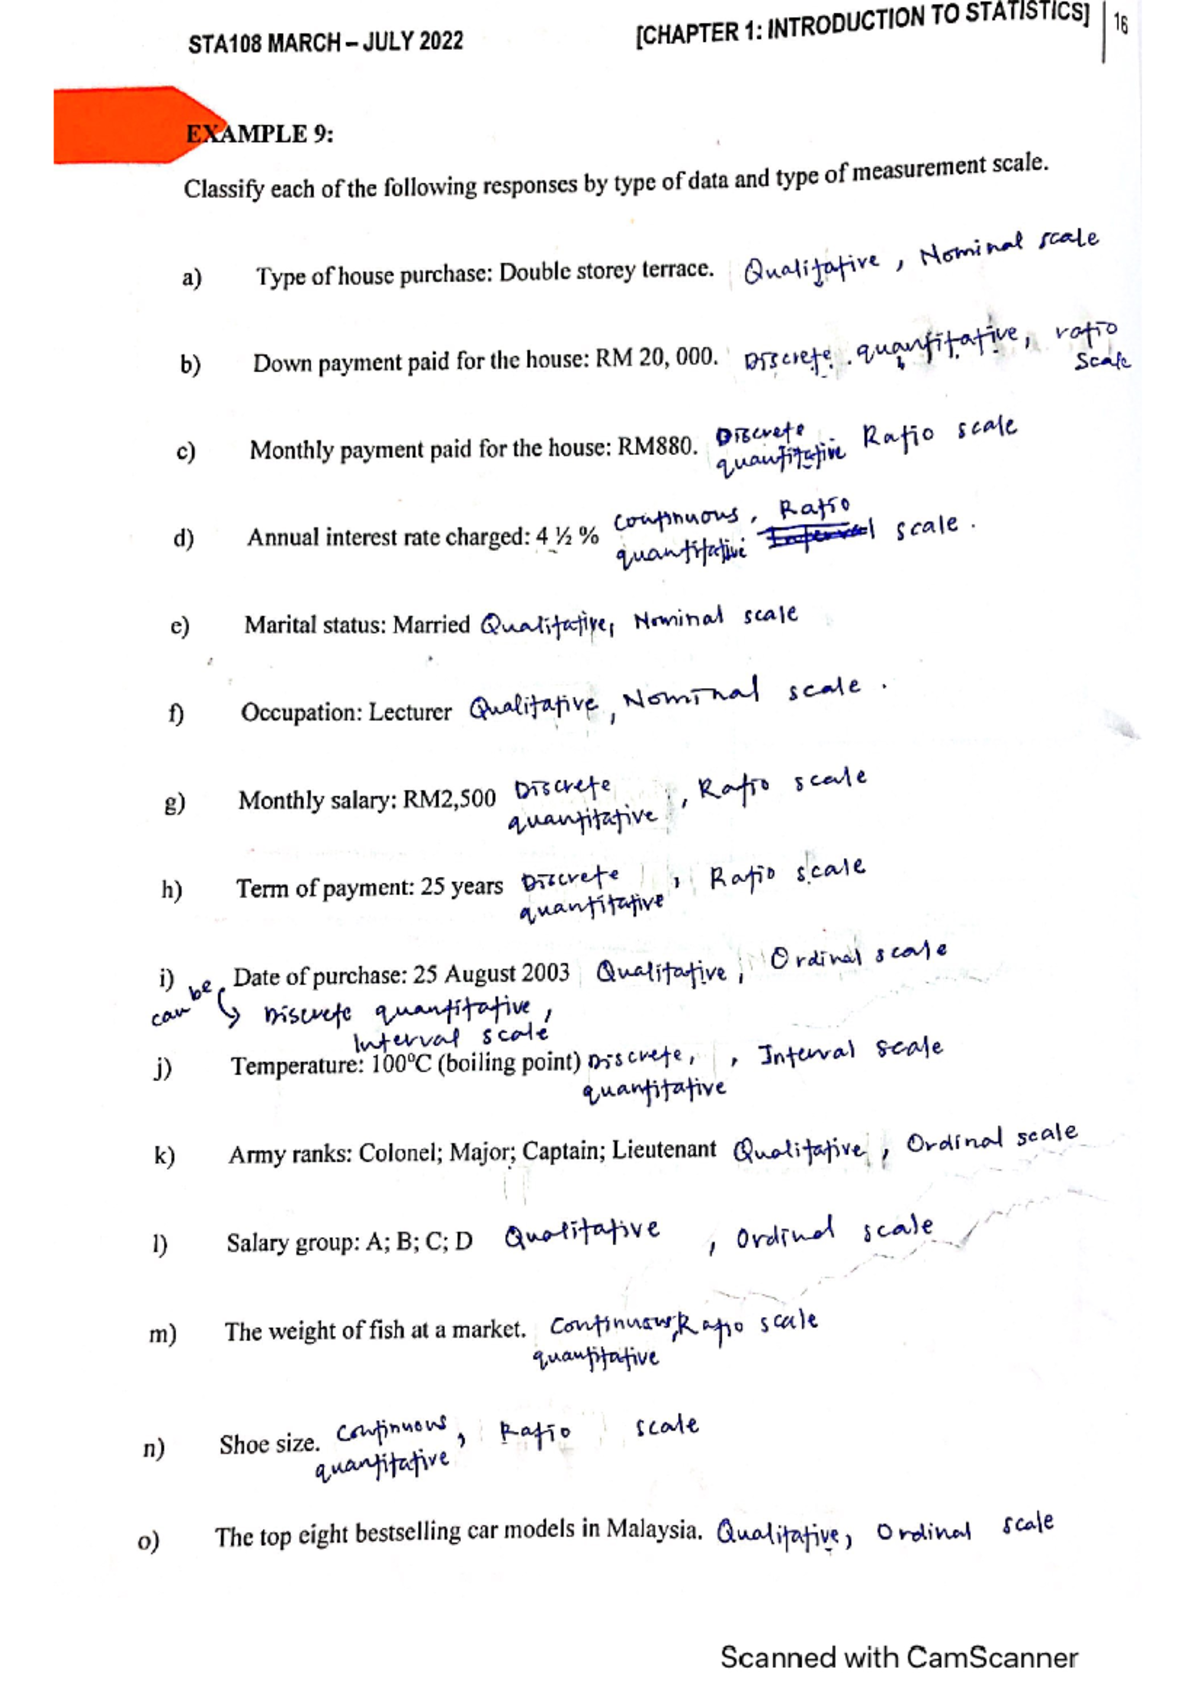 STA108 MARCH – JULY 2022
[CHAPTER 1: INTRODUCTION TO STATISTICS] 16
EXAMPLE 9:
Classify each of the following responses by type of data and type of measurement scale.
a) Type of house purchase: Double storey terrace. Qualitative, Nominal scale
b) Down payment paid for the house: RM 20, 000. Discrete quantitative, ratio
scale
c) Monthly payment paid for the house: RM880. Discrete
quantitative Ratio scale
d) Annual interest rate charged: 4 ½ % continuous, Ratio
quantitative Interval scale.
e) Marital status: Married Qualitative, Nominal scale
f) Occupation: Lecturer Qualitative, Nominal scale.
g) Monthly salary: RM2,500 Discrete
quantitative, Ratio scale
h) Term of payment: 25 years Discrete
quantitative, Ratio scale
i) Date of purchase: 25 August 2003 Qualitative, Ordinal scale
can be ↳ Discrete quantitative,
Interval scale
j) Temperature: 100°C (boiling point) Discrete, , Interval scale
quantitative
k) Army ranks: Colonel; Major; Captain; Lieutenant Qualitative, Ordinal scale
l) Salary group: A; B; C; D Qualitative, Ordinal scale
m) The weight of fish at a market. Continuous, Ratio scale
quantitative
n) Shoe size. Continuous, Ratio scale
quantitative
o) The top eight bestselling car models in Malaysia. Qualitative, Ordinal scale
Scanned with CamScanner